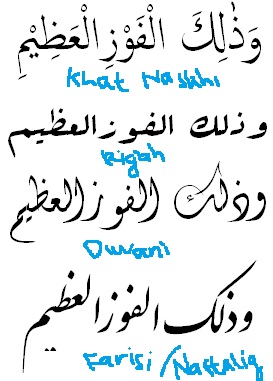 وَذٰلِكَ الْفَوْزِ الْعَظِيْمِ
Khat Naskhi
وذلك الفوز العظيم
Riq'ah
وذلك الفوز العظيم
Diwani
وذلك الفوز العظيم
Farisi / Nastaliq